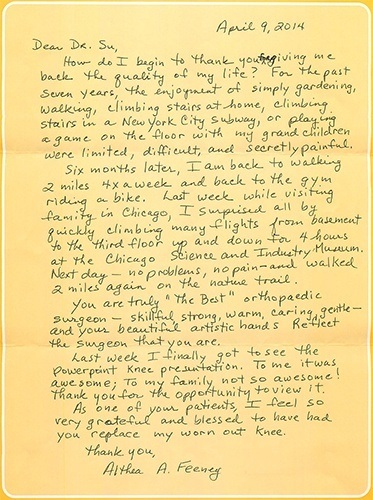 April 9, 2014
Dear Dr. Su,
How do I begin to thank you for giving me
back the quality of my life? For the past
seven years, the enjoyment of simply gardening,
walking, climbing stairs at home, climbing
stairs in a New York City subway, or playing
a game on the floor with my grandchildren
were limited, difficult, and secretly painful.
Six months later, I am back to walking
2 miles 4x a week and back to the gym
riding a bike. Last week while visiting
family in Chicago, I surprised all by
quickly climbing many flights from basement
to the third floor up and down for 4 hours
at the Chicago Science and Industry Museum.
Next day - no problems, no pain - and walked
2 miles again on the nature trail.
You are truly "The Best" orthopaedic
surgeon - skillful strong, warm, caring, gentle -
and your beautiful artistic hands Reflect
the surgeon that you are.
Last week I finally got to see the
Powerpoint Knee presentation. To me it was
awesome; To my family not so awesome!
Thank you for the opportunity to view it.
As one of your patients, I feel so
very grateful and blessed to have had
you replace my worn out knee.
Thank you,
Althea A. Feeney